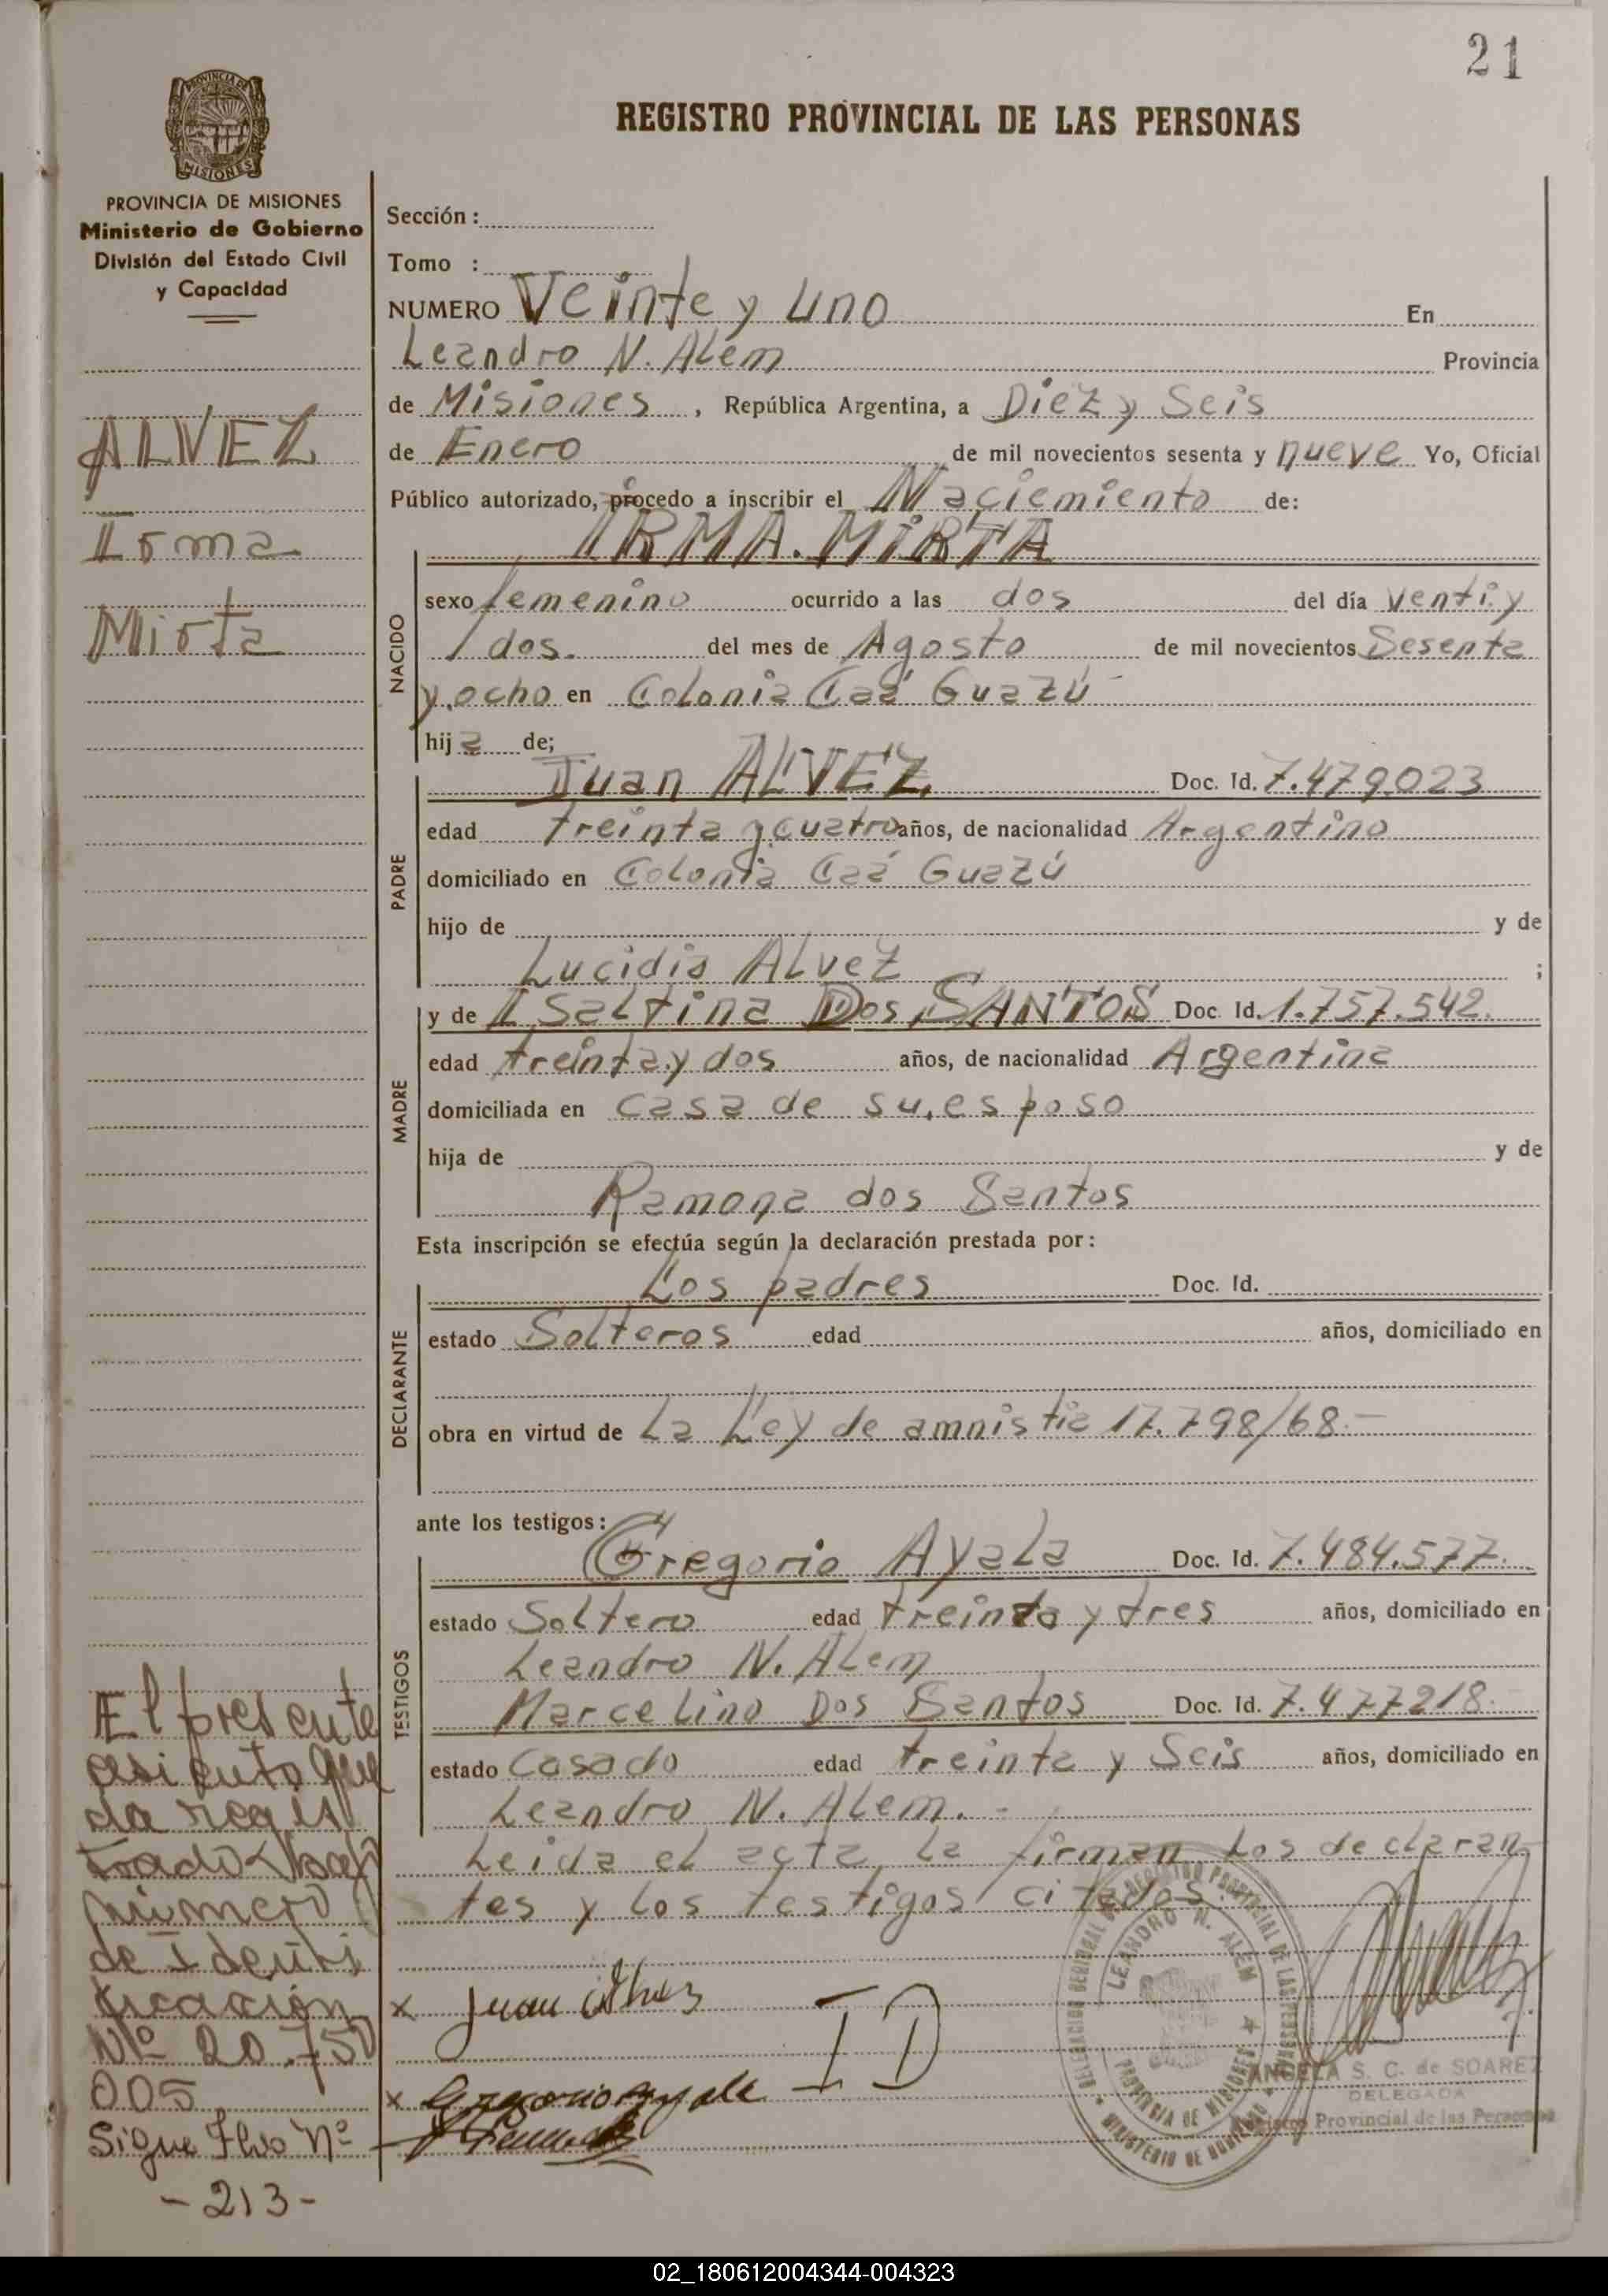 21
REGISTRO PROVINCIAL DE LAS PERSONAS
PROVINCIA DE MISIONES
Ministerio de Gobierno
División del Estado Civil
y Capacidad
ALVEZ
Irma
Mirta
Sección :
Tomo :
NUMERO Veinte y uno En
Leandro N. Alem Provincia
de Misiones , República Argentina, a Diez y Seis
de Enero de mil novecientos sesenta y nueve Yo, Oficial
Público autorizado, procedo a inscribir el Naciemiento de:
IRMA. MIRTA
NACIDO
sexo femenino ocurrido a las dos del día venti y
dos. del mes de Agosto de mil novecientos Sesenta
y ocho en Colonia Caá Guazú
hij a de;
PADRE
Juan ALVEZ Doc. Id. 7.479.023
edad treinta y cuatro años, de nacionalidad Argentino
domiciliado en Colonia Caá Guazú
hijo de y de
Lucidia Alvez ;
MADRE
y de Isaltina Dos SANTOS Doc. Id. 1.757.542.
edad treinta y dos años, de nacionalidad Argentina
domiciliada en casa de su esposo
hija de y de
Ramona dos Santos
Esta inscripción se efectúa según la declaración prestada por :
DECLARANTE
Los padres Doc. Id.
estado Solteros edad años, domiciliado en
obra en virtud de La Ley de amnistia 17.798/68.-
ante los testigos :
TESTIGOS
Gregorio Ayala Doc. Id. 7.484.577.
estado Soltero edad treinta y tres años, domiciliado en
Leandro N. Alem
Marcelino Dos Santos Doc. Id. 7.477218.
estado Casado edad treinta y Seis años, domiciliado en
Leandro N. Alem. -
Leida el acta, la firman Los declaran
tes y los testigos citados.
x Juan Alvez
I D
x Gregorio Ayala
El presente
asiento que
da regis
trado bajo
número
de Identi
ficación
Nº 20.750
005
Sigue Flio Nº
- 213 -
LEANDRO N. ALEM
PROVINCIA DE MISIONES
MINISTERIO DE GOBIERNO
ANGELA S. C. de SOAREZ
DELEGADA
Registro Provincial de las Personas
02_180612004344-004323